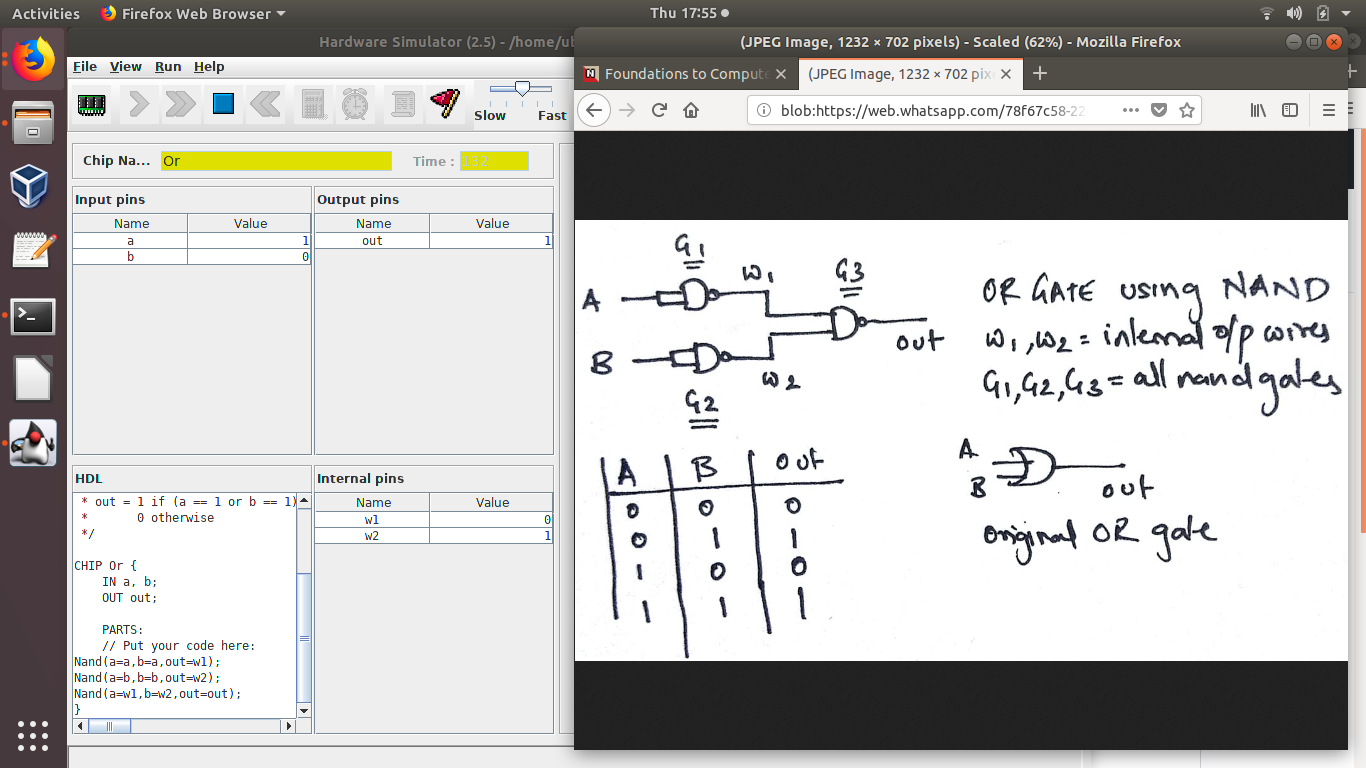 Activities
Firefox Web Browser
Thu 17:55
Hardware Simulator (2.5) - /home/ub
File View Run Help
Slow Fast
Chip Na... Or Time : 132
Input pins
Name Value
a 1
b 0
Output pins
Name Value
out 1
HDL
* out = 1 if (a == 1 or b == 1)
* 0 otherwise
*/
CHIP Or {
IN a, b;
OUT out;
PARTS:
// Put your code here:
Nand(a=a,b=a,out=w1);
Nand(a=b,b=b,out=w2);
Nand(a=w1,b=w2,out=out);
}
Internal pins
Name Value
w1 0
w2 1
(JPEG Image, 1232 × 702 pixels) - Scaled (62%) - Mozilla Firefox
Foundations to Compute
(JPEG Image, 1232 × 702 pix
blob:https://web.whatsapp.com/78f67c58-22
G1
A
W1
G3
out
B
W2
G2
OR GATE using NAND
W1, W2 = internal o/p wires
G1, G2, G3 = all nand gates
A B out
0 0 0
0 1 1
1 0 0
1 1 1
A
B
out
original OR gate